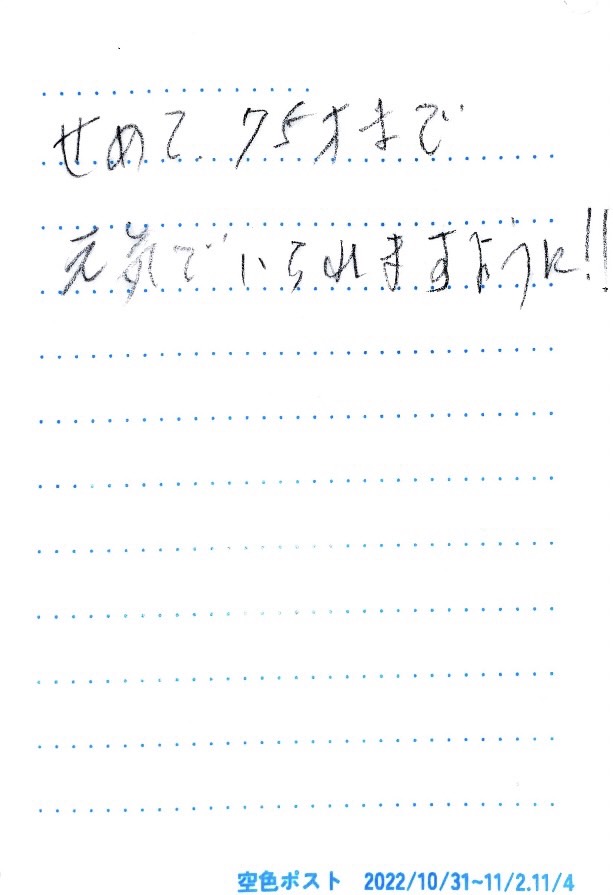 せめて 75才まで
元気でいられますように!!
空色ポスト 2022/10/31~11/2.11/4